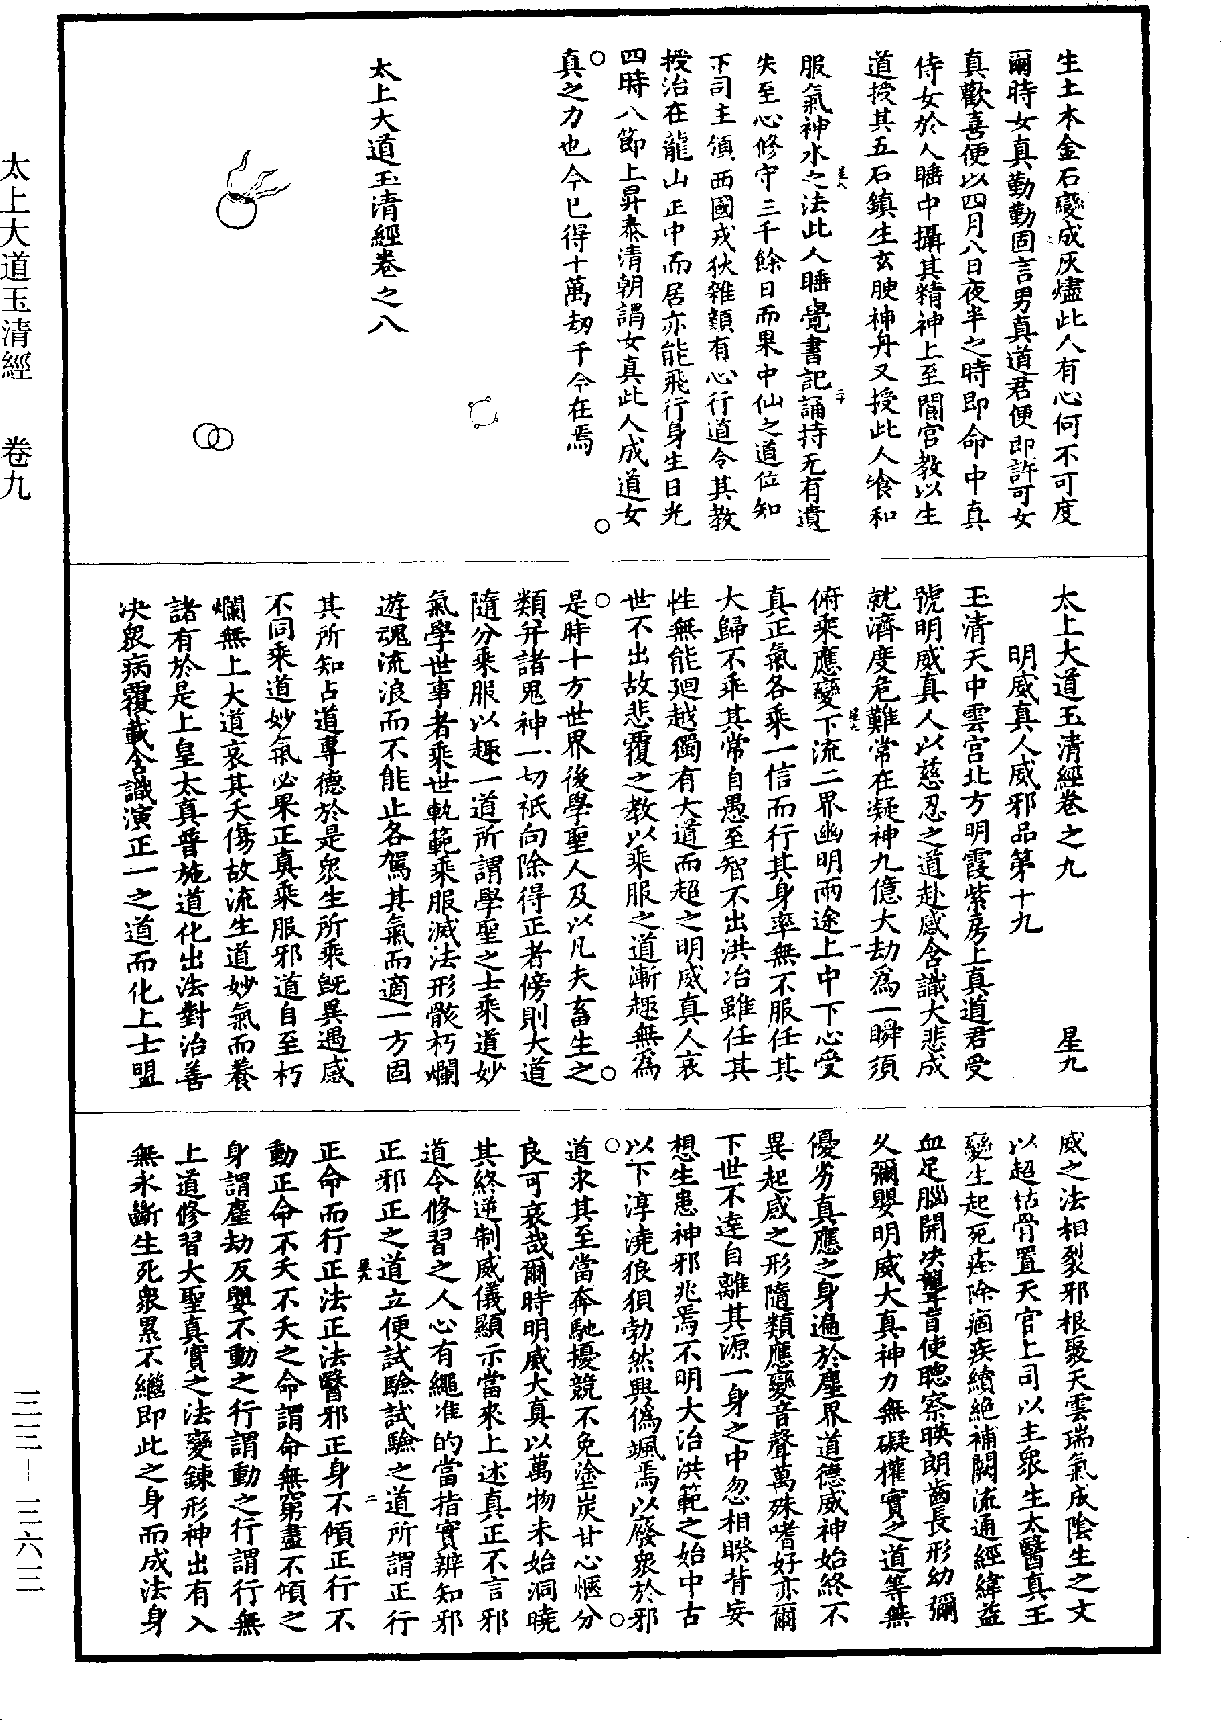 太上大道玉清經 卷九
三三—三六二
生土木金石變成灰燼此人有心何不可度
爾時女真勤勤固言男真道君便即許可女
真歡喜便以四月八日夜半之時即命中真
侍女於人睡中攝其精神上至閶宮教以生
道授其五石鎮生玄腴神丹又授此人飡和
服氣神水之法此人睡覺書記誦持无有遺
失至心修守三千餘日而果中仙之道位知
下司主領西國戎狄雜類有心行道令其教
授治在龍山正中而居亦能飛行身生日光
四時八節上昇泰清朝謁女真此人成道女
真之力也今已得十萬劫于今在焉
太上大道玉清經卷之八
太上大道玉清經卷之九 星九
明威真人威邪品第十九
玉清天中雲宮北方明霞紫房上真道君受
號明威真人以慈忍之道赴感含識大悲成
就濟度危難常在凝神九億大劫為一瞬須
俯乘應變下流二界幽明兩途上中下心受
真正氣各乘一信而行其身率無不服任其
大歸不乖其常自愚至智不出洪冶雖任其
性無能迴越獨有大道而超之明威真人哀
世不出故悲覆之教以乘服之道漸趣無為
是時十方世界後學聖人及以凡夫畜生之
類并諸鬼神一切祇向除得正者傍則大道
隨分乘服以趣一道所謂學聖之士乘道妙
氣學世事者乘世軌範乘服滅法形骸朽爛
遊魂流浪而不能止各駕其氣而適一方固
其所知占道專德於是眾生所乘既異遇感
不同乘道妙氣必果正真乘服邪道自至朽
爛無上大道哀其夭傷故流生道妙氣而養
諸有於是上皇太真普施道化出法對治善
決眾病覆載含識演正一之道而化上士盟
威之法相裂邪根聚天雲瑞氣成陰生之文
以超枯骨置天官上司以主眾生太醫真王
變生起死痊除痼疾續絕補闕流通經緯益
血足腦開決聾盲使聰察暎朗齒長形幼彌
久彌嬰明威大真神力無礙權實之道等無
優劣真應之身遍於塵界道德威神始終不
異起感之形隨類應變音聲萬殊嗜好亦爾
下世不達自離其源一身之中忽相睽背妄
想生患神邪兆焉不明大治洪範之始中古
以下淳澆狼狽勃然興偽颯焉以廢眾於邪
道求其至當奔馳擾競不免塗炭甘心愜分
良可哀哉爾時明威大真以萬物未始洞曉
其終逆制威儀顯示當來上述真正不言邪
道令修習之人心有繩准的當指實辨知邪
正邪正之道立便試驗試驗之道所謂正行
正命而行正法正法醫邪正身不傾正行不
動正命不夭不夭之命謂命無窮盡不傾之
身謂塵劫反嬰不動之行謂動之行謂行無
上道修習大聖真實之法變鍊形神出有入
無永斷生死眾累不繼即此之身而成法身